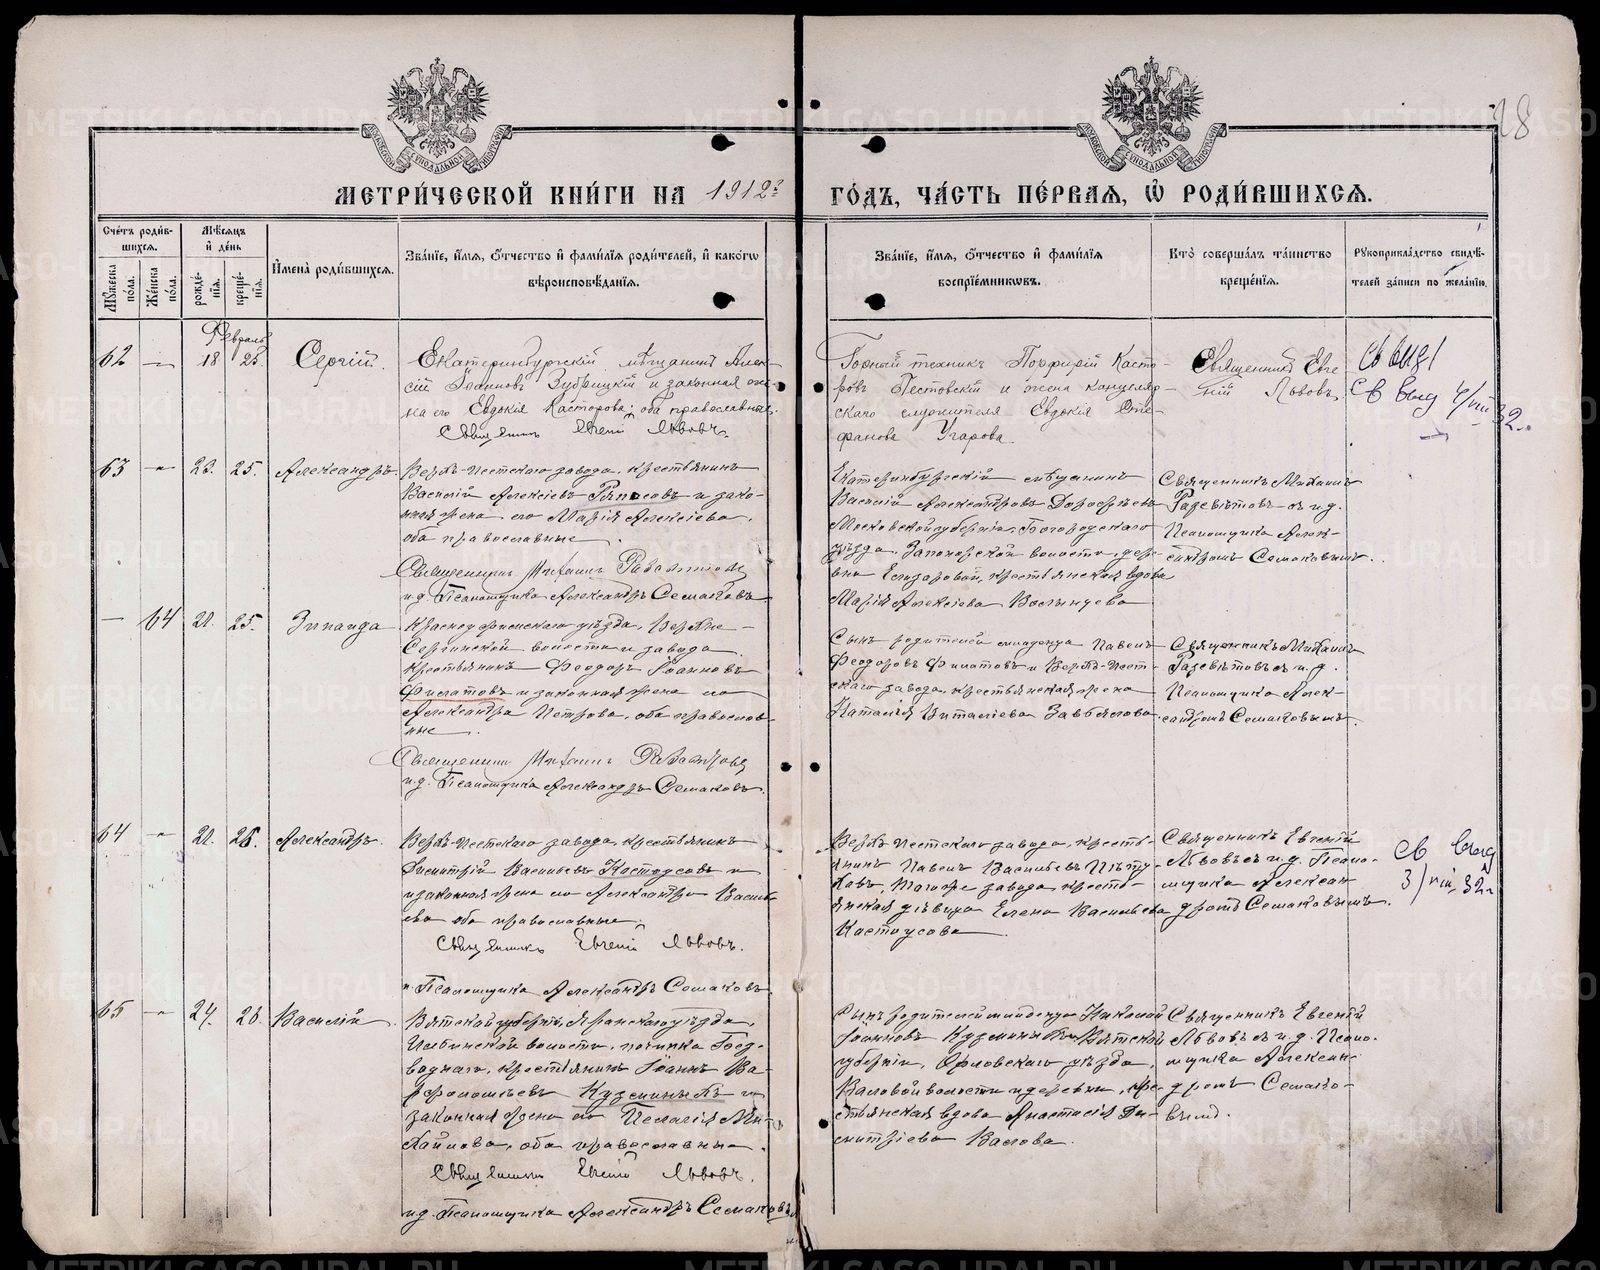 28
МЕТРИ́ЧЕСКОЙ КНИ́ГИ НА 1912 г.
ГО́ДЪ, ЧА́СТЬ ПЕ́РВАЯ, Ѡ РОДИ́ВШИХСЯ.
Сче́тъ роди́в-
шихся.
Му́жеска
по́ла.
Же́нска
по́ла.
Мѣ́сяцъ
и де́нь
рожде́-
нія.
креще́-
нія.
И҆мена̀ роди́вшихся.
Зва́ніе, и҆́мя, ѻ҆́тчество и҆ фами́лія роди́телей, и҆ како́гѡ
вѣроисповѣ́данія.
Зва́ніе, и҆́мя, ѻ҆́тчество и҆ фами́лія
воспрїе́мниковъ.
Кто̀ соверша́лъ та́инство
креще́нія.
Рукоприкла́дство свидѣ́-
телей за́писи по жела́нію.
Февраль
62
—
18
25
Сергій.
Екатеринбургскій мѣщанинъ Алек-
сій Іоанновъ Зубрицкій и законная же-
на его Евдокія Касторова; оба православные.
Священникъ Евгеній Львовъ.
Горный техникъ Порфирій Касто-
ровъ Пестовскій и жена канцеляр-
скаго служителя Евдокія Сте-
фанова Угарова.
Священникъ Евге-
ній Львовъ.
Св выд
Св выд 4/VIII 32
63
—
22.
25.
Александръ.
Верхъ-Исетскаго завода, крестьянинъ
Василій Алексіевъ и зако-
нная жена его Марія Алексіева,
оба православные.
Священникъ Михаилъ
и.д. Псаломщика Александръ Семаковъ
Екатеринбургскій мѣщанинъ
Василій Александровъ
Московской губерніи, Богородскаго
уѣзда, Запонорской волости, дере-
вни крестьянская вдова
Марія Алексіева
Священникъ Михаилъ
съ и.д.
Псаломщика Алек-
сандромъ Семаковымъ.
—
64
22.
25.
Зинаида
Красноуфимскаго уѣзда, Верхне-
Сергинской волости и завода
крестьянинъ Феодоръ Іоанновъ
Филатовъ и законная жена его
Александра Петрова, оба православ-
ные.
Священникъ Михаилъ
и.д. Псаломщика Александръ Семаковъ.
Сынъ родителей младенца Павелъ
Феодоровъ Филатовъ и Верхъ-Исет-
скаго завода, крестьянская жена
Наталія Виталіева
Священникъ Михаилъ
съ и.д.
Псаломщика Алек-
сандромъ Семаковымъ.
64
—
22.
26.
Александръ.
Верхъ-Исетскаго завода, крестьянинъ
Димитрій Васильевъ Костоусовъ и
законная жена его Александра Василь-
ева оба православные.
Священникъ Евгеній Львовъ.
и. Псаломщика Александръ Семаковъ
Верхъ-Исетскаго завода, кресть-
янинъ Павелъ Васильевъ Пѣту-
ховъ, тогоже завода, кресть-
янская дѣвица Елена Васильева
Костоусова.
Священникъ Евгеній
Львовъ съ и.д. Псало-
мщика Алексан-
дромъ Семаковымъ.
Св выд
3/VIII 32 г.
65
—
24.
26.
Василій
Вятской губерніи, Яранскаго уѣзда,
волости, починка
крестьянинъ Іоаннъ Ва-
рфоломеевъ Кузминыхъ и
законная жена его Пелагія Ми-
хайлова, оба православные.
Священникъ Евгеній Львовъ.
и.д. Псаломщика Александръ Семаковъ
Сынъ родителей младенца Николай
Іоанновъ Кузминыхъ и Вятской
губерніи, Орловскаго уѣзда,
волости и деревни, кре-
стьянская вдова Анастасія Ди-
митріева
Священникъ Евгеній
Львовъ съ и.д. Псало-
мщика Алексан-
дромъ Семако-
вымъ.
METRIKI.GASO-URAL.RU